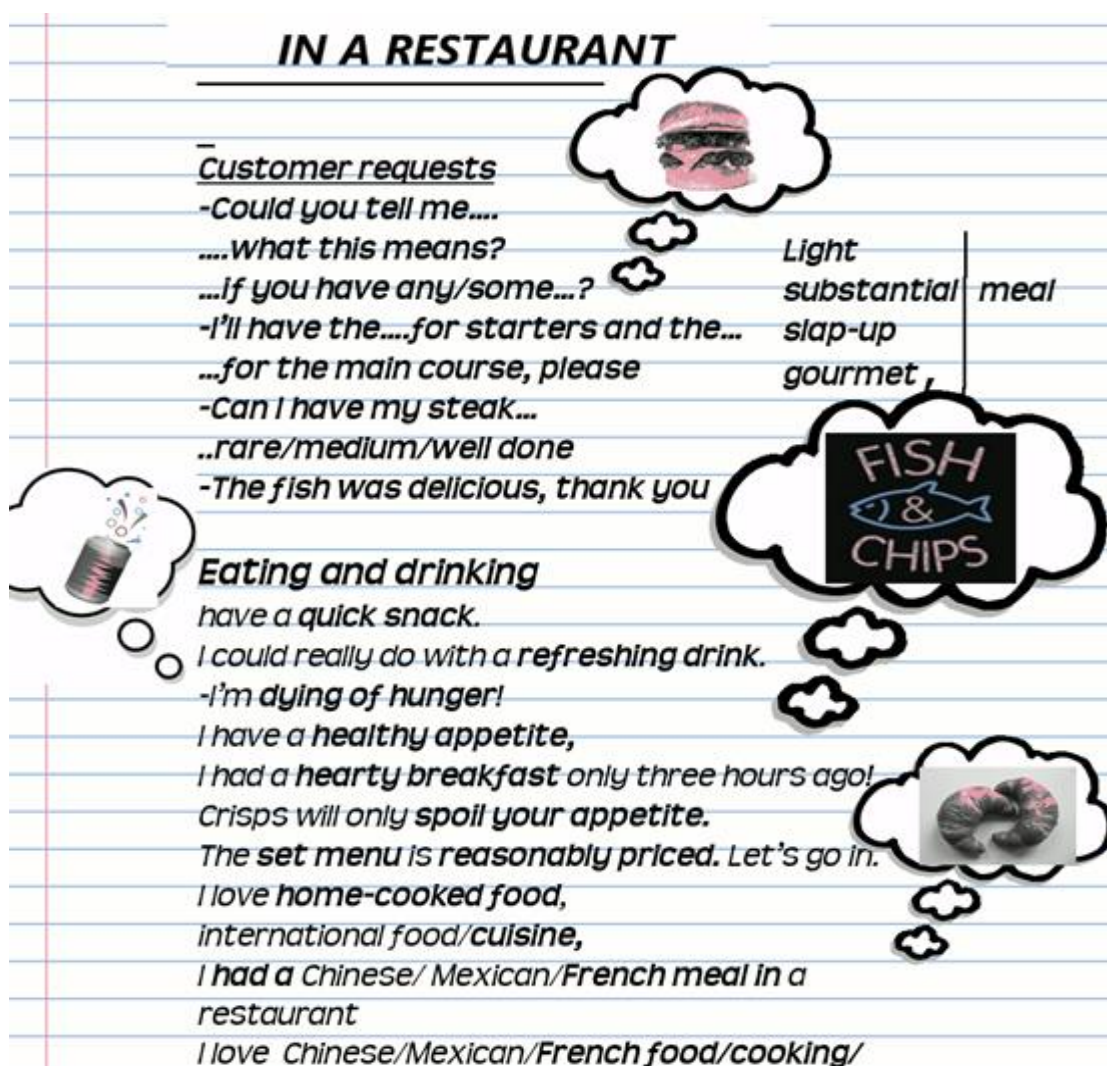 IN A RESTAURANT
Customer requests
-Could you tell me....
....what this means?
...if you have any/some...?
-I'll have the....for starters and the...
...for the main course, please
-Can I have my steak...
..rare/medium/well done
-The fish was delicious, thank you
Light
substantial meal
slap-up
gourmet
FISH
&
CHIPS
Eating and drinking
have a quick snack.
I could really do with a refreshing drink.
-I'm dying of hunger!
I have a healthy appetite,
I had a hearty breakfast only three hours ago!
Crisps will only spoil your appetite.
The set menu is reasonably priced. Let's go in.
I love home-cooked food,
international food/cuisine,
I had a Chinese/ Mexican/French meal in a
restaurant
I love Chinese/Mexican/French food/cooking/